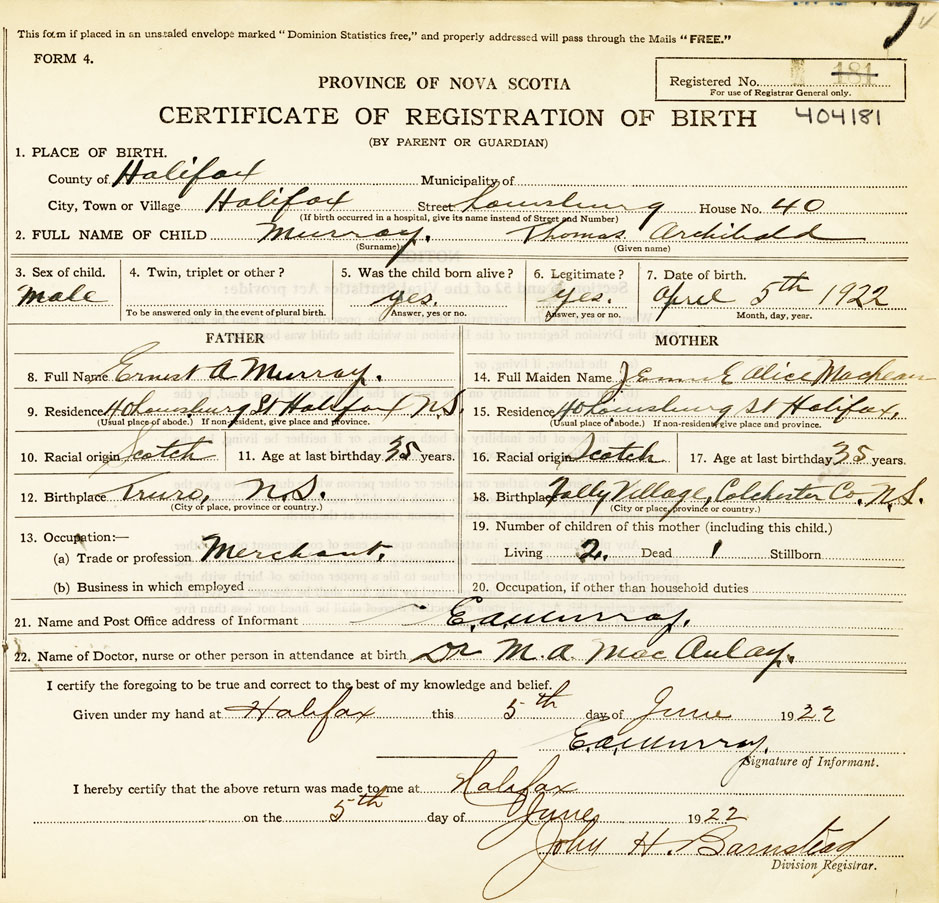 This form if placed in an unsealed envelope marked "Dominion Statistics free," and properly addressed will pass through the Mails "FREE."
FORM 4.
PROVINCE OF NOVA SCOTIA
Registered No. 181
For use of Registrar General only.
CERTIFICATE OF REGISTRATION OF BIRTH 404181
(BY PARENT OR GUARDIAN)
1. PLACE OF BIRTH.
County of Halifax Municipality of
City, Town or Village Halifax Street Louisburg House No. 40
(If birth occurred in a hospital, give its name instead of Street and Number)
2. FULL NAME OF CHILD Murray. Thomas Archibald
(Surname) (Given name)
3. Sex of child. 4. Twin, triplet or other? 5. Was the child born alive? 6. Legitimate? 7. Date of birth.
Male yes. Yes. April 5th 1922
To be answered only in the event of plural birth. Answer, yes or no. Answer, yes or no. Month, day, year.
FATHER MOTHER
8. Full Name Ernest A Murray. 14. Full Maiden Name Alice
9. Residence 40 Louisburg St Halifax N.S. 15. Residence 40 Louisburg St Halifax.
(Usual place of abode.) If non-resident, give place and province. (Usual place of abode.) If non-resident, give place and province.
10. Racial origin Scotch 11. Age at last birthday 35 years. 16. Racial origin Scotch 17. Age at last birthday 35 years.
12. Birthplace Truro, N.S. 18. Birthplace Folly Village, Colchester Co. N.S.
(City or place, province or country.) (City or place, province or country.)
13. Occupation:— 19. Number of children of this mother (including this child.)
(a) Trade or profession Merchant. Living 2. Dead 1 Stillborn
(b) Business in which employed 20. Occupation, if other than household duties
21. Name and Post Office address of Informant E.A. Murray.
22. Name of Doctor, nurse or other person in attendance at birth Dr M. A. MacAulay.
I certify the foregoing to be true and correct to the best of my knowledge and belief.
Given under my hand at Halifax this 5th day of June 1922
E.A. Murray.
Signature of Informant.
I hereby certify that the above return was made to me at Halifax
on the 5th day of June 1922
John H. Barnstead
Division Registrar.